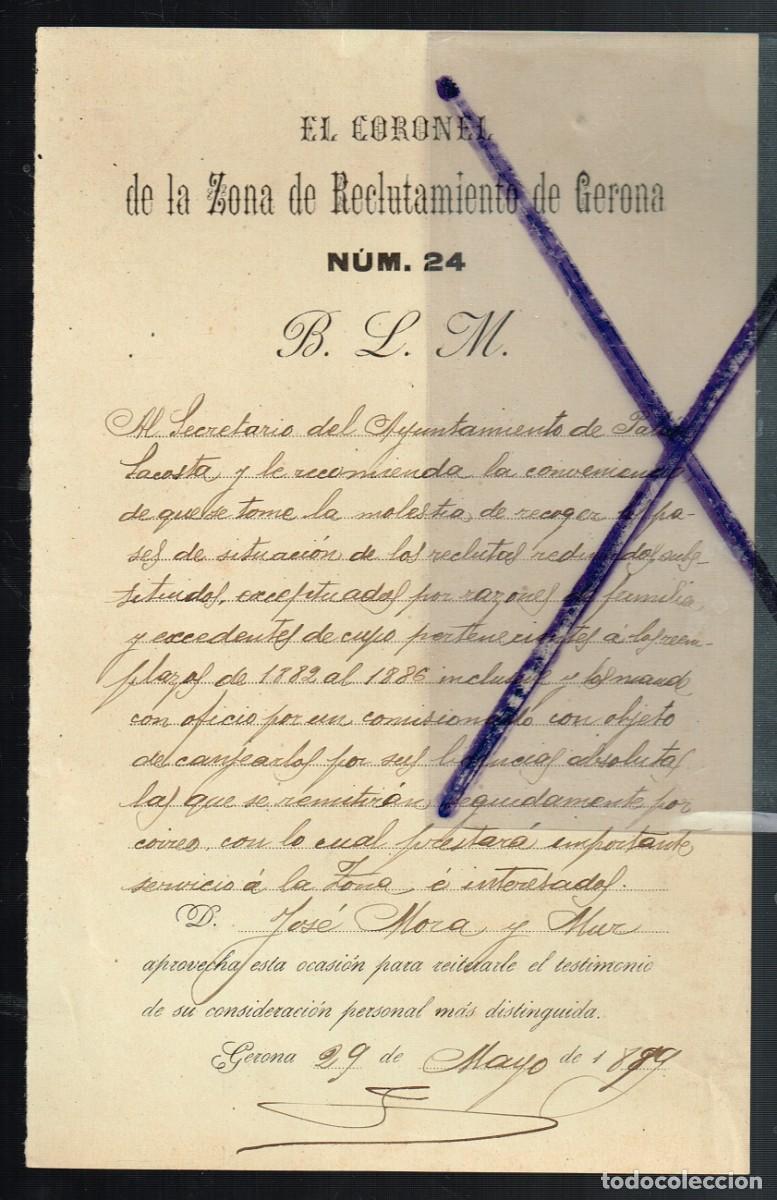 EL CORONEL
de la Zona de Reclutamiento de Gerona
NÚM. 24
B. L. M.
Al Secretario del Ayuntamiento de Palau
Sacosta, y le recomienda la conveniencia
de que se tome la molestia, de recoger los pa-
ses de situación de los reclutas redimidos, sus-
tituidos, exceptuados por razones de familia,
y excedentes de cupo pertenecientes á los reem-
plazos de 1882 al 1886 inclusive y los mande
con oficio por un comisionado con objeto
de canjearlos por sus licencias absolutas
las que se remitirán, seguidamente por
correo, con lo cual prestará importante
servicio á la Zona é interesados.
D. José Mora y Mur
aprovecha esta ocasión para reiterarle el testimonio
de su consideración personal más distinguida.
Gerona 29 de Mayo de 1899
todocoleccion